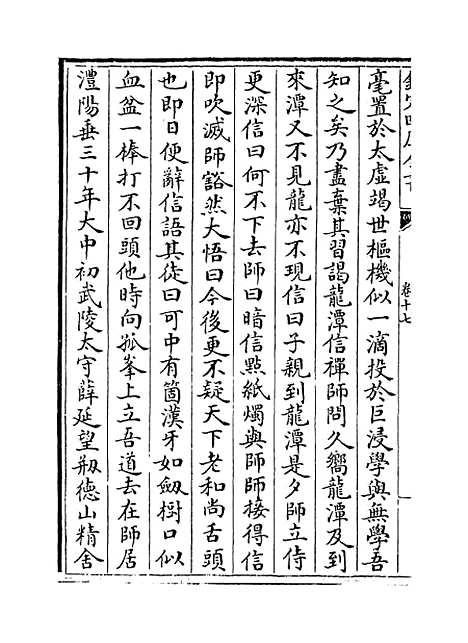 卷十七
毫置於太虛竭世樞機似一滴投於巨浸學與無學吾
知之矣乃盡棄其習謁龍潭信禪師問久嚮龍潭及到
來潭又不見龍亦不現信曰子親到龍潭是夕師立侍
更深信曰何不下去師曰暗信點紙燭與師師接得信
即吹滅師豁然大悟曰今後更不疑天下老和尚舌頭
也即日便辭信語其徒曰可中有箇漢牙如劔樹口似
血盆一棒打不回頭他時向孤峯上立吾道去在師居
澧陽垂三十年大中初武陵太守薛延望剏德山精舍